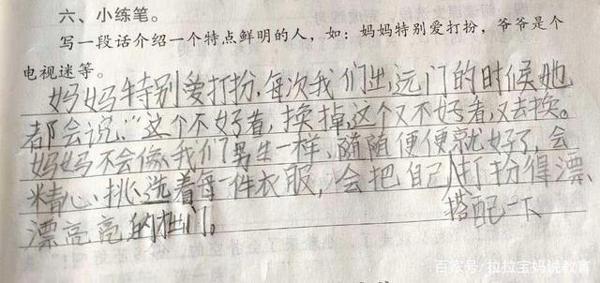 六、小练笔。
写一段话介绍一个特点鲜明的人，如：妈妈特别爱打扮，爷爷是个
电视迷等。
妈妈特别爱打扮，每次我们出远门的时候她
都会说：“这个不好看，换掉，这个又不好看，又去换。
妈妈不会像我们男生一样，随随便便就好了，会
精心挑选着每一件衣服，会把自己打扮得漂
搭配一下
漂亮亮的出门。
百家号/拉拉宝妈说教育